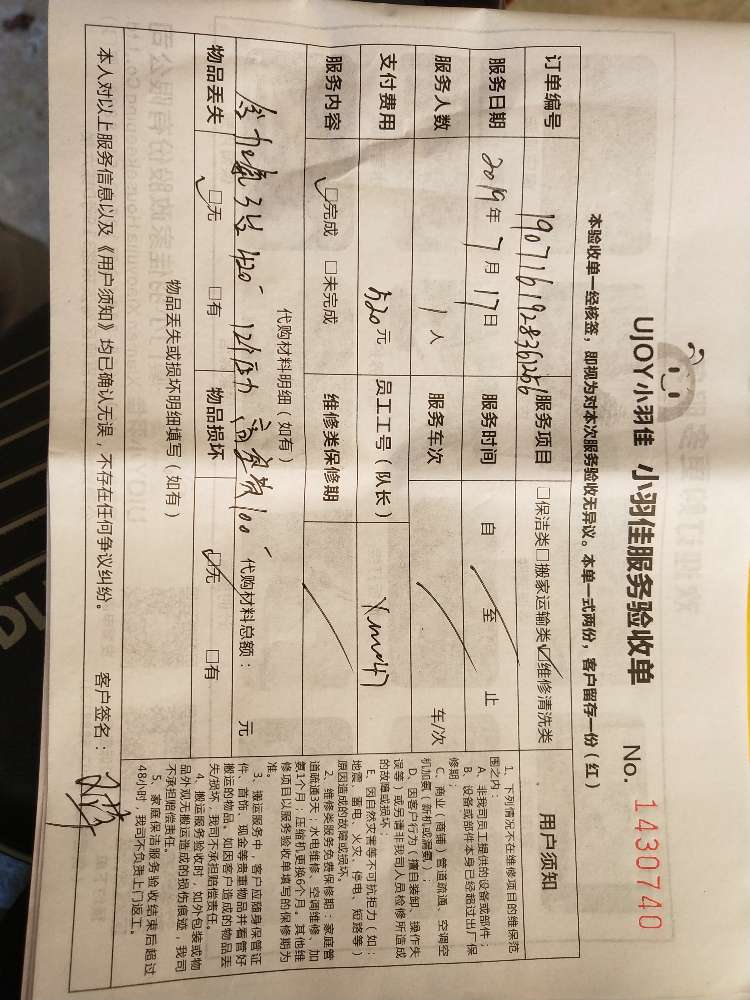 UJOY小羽佳 小羽佳服务验收单 No. 1430740
本验收单一经核签，即视为对本次服务验收无异议。本单一式两份，客户留存一份（红）
订单编号 190716192836256 服务项目 □保洁类□搬家运输类☑维修清洗类
服务日期 2019年7月17日 服务时间 自 至 止
服务人数 1人 服务车次 车/次
支付费用 520元 员工工号（队长） Xmd47
服务内容 ☑完成 □未完成 维修类保修期
代购材料明细（如有）
420 12个压力 100 代购材料总额： 元
物品丢失 ☑无 □有 物品损坏 ☑无 □有
物品丢失或损坏明细填写（如有）
本人对以上服务信息以及《用户须知》均已确认无误，不存在任何争议纠纷。 客户签名：
用户须知
1、下列情况不在维修项目的维保范
围之内：
A、非我司员工提供的设备或部件；
B、设备或部件本身已经超过出厂保
修期；
C、商业（商铺）管道疏通、空调空
机加氨、新机或漏氨）；
D、因客户行为（擅自装卸、操作失
误等）或另请非我司人员检修所造成
的故障或损坏；
E、因自然灾害等不可抗拒力（如：
地震、雷电、火灾、停电、短路等）
原因造成的故障或损坏。
2、维修类服务免费保修期：家庭管
道疏通3天；水电维修、空调维修、加
氨1个月，压缩机更换6个月。其他维
修项目以服务验收单填写的保修期为
准。
3、搬运服务中，客户应随身保管证
件、首饰、现金等贵重物品并看管好
搬运的物品。如因客户造成的物品丢
失/损坏，我司不承担赔偿责任。
4、搬运服务验收时，如外包装或物
品外观无搬运造成的损伤痕迹，我司
不承担赔偿责任。
5、家庭保洁服务验收结束后超过
48小时，我司不负责上门返工。